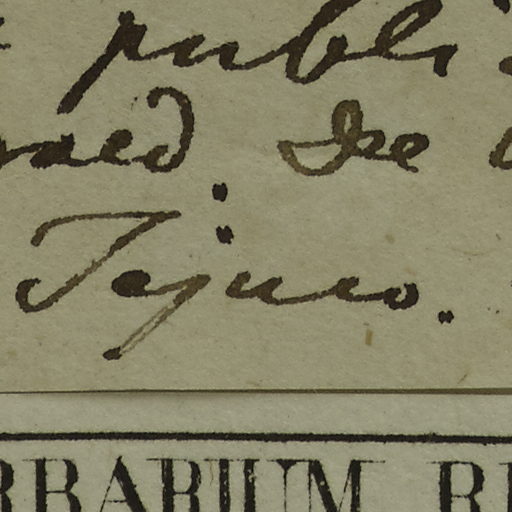 publi
aed. De
Tejuco.
RBARIUM R